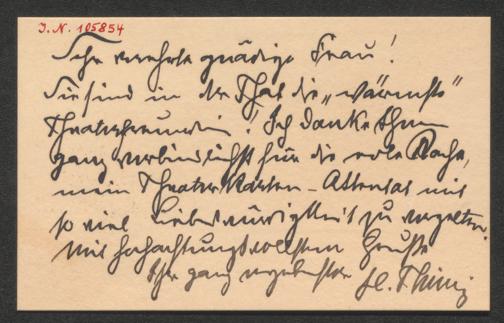 J.N. 105854
Sehr verehrte gnädige Frau!
Sie sind in der That die „wärmste"
Theaterfreundin! Ich danke Ihnen
ganz verbindlichst für die edle Rache,
mein Theaterkarten-Attentat mit
so viel Liebenswürdigkeit zu vergelten.
Mit hochachtungsvollstem Gruße
Ihr ganz ergebenster H. Thimig